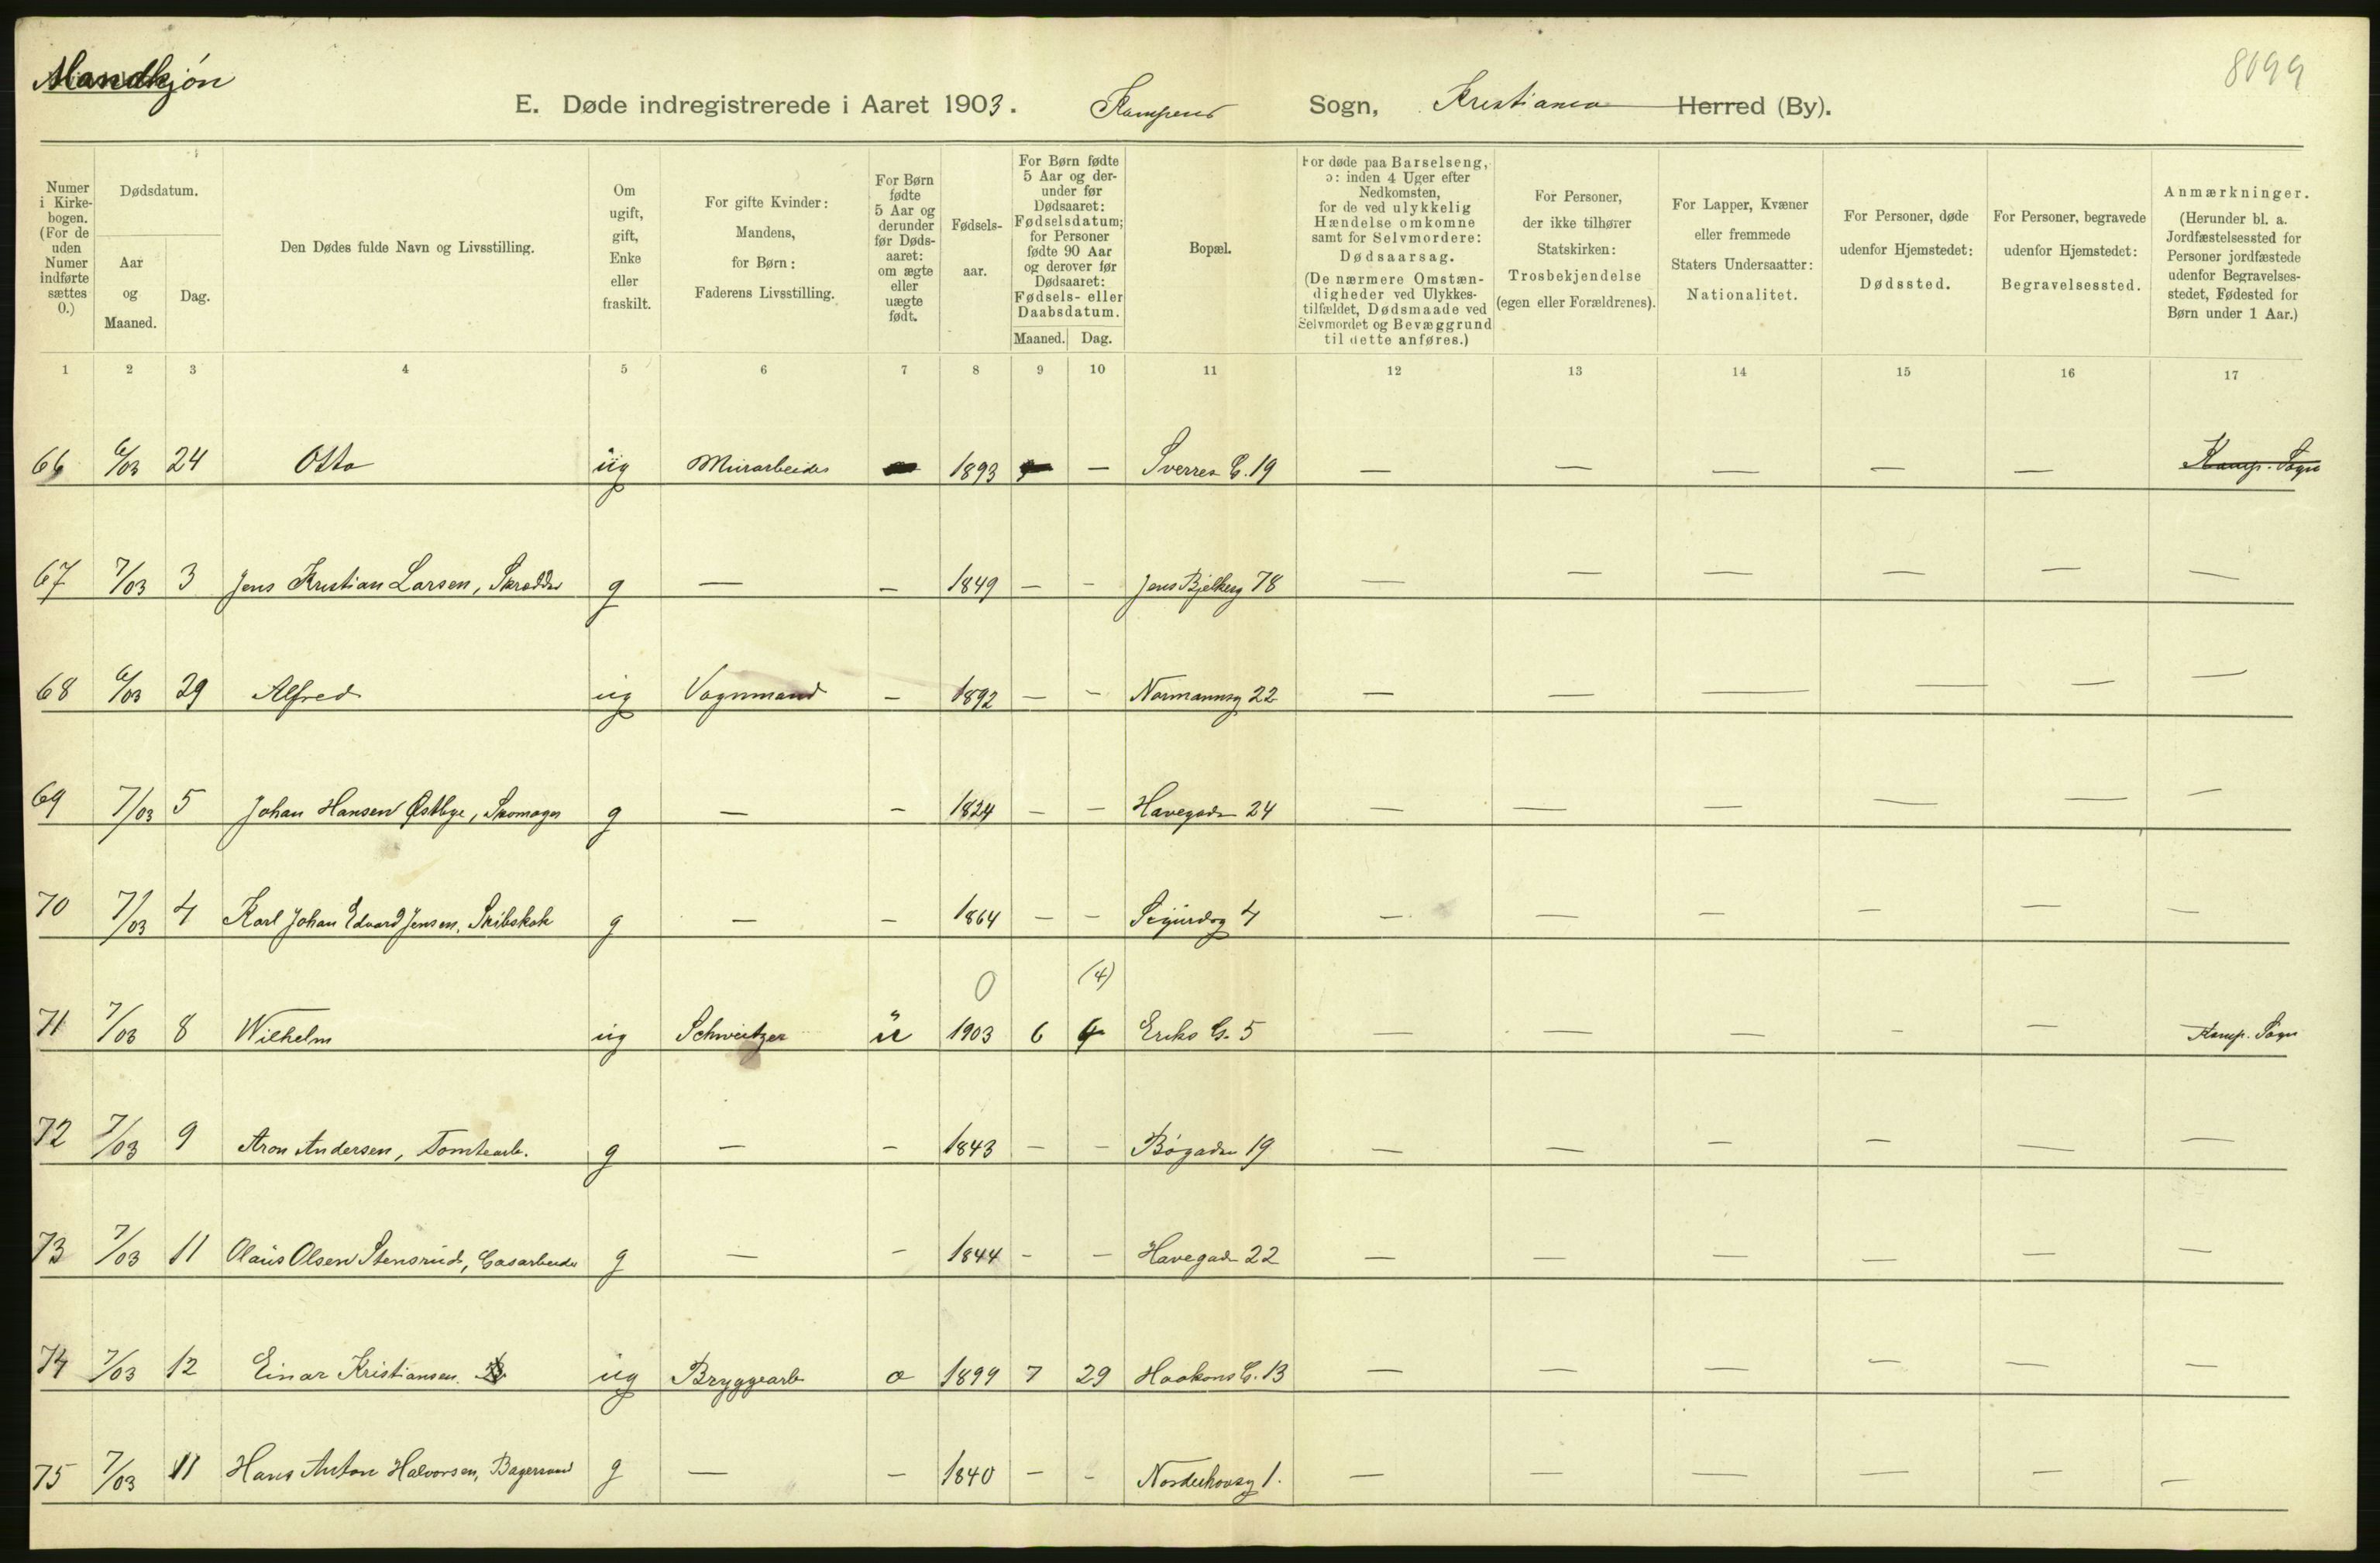 Mandkjøn
8099
E. Døde indregistrerede i Aaret 1903. Kampens Sogn, Kristiania Herred (By).
Numer i Kirkebogen. (For de uden Numer indførte sættes 0.)
Dødsdatum.
Aar og Maaned.
Dag.
Den Dødes fulde Navn og Livsstilling.
Om ugift, gift, Enke eller fraskilt.
For gifte Kvinder: Mandens, for Børn: Faderens Livsstilling.
For Børn fødte 5 Aar og derunder før Dødsaaret: om ægte eller uægte født.
Fødselsaar.
For Børn fødte 5 Aar og derunder før Dødsaaret: Fødselsdatum; for Personer fødte 90 Aar og derover før Dødsaaret: Fødsels- eller Daabsdatum.
Maaned. Dag.
Bopæl.
For døde paa Barselseng, ɔ: inden 4 Uger efter Nedkomsten, for de ved ulykkelig Hændelse omkomne samt for Selvmordere: Dødsaarsag. (De nærmere Omstændigheder ved Ulykkestilfældet, Dødsmaade ved Selvmordet og Bevæggrund til dette anføres.)
For Personer, der ikke tilhører Statskirken: Trosbekjendelse (egen eller Forældrenes).
For Lapper, Kvæner eller fremmede Staters Undersaatter: Nationalitet.
For Personer, døde udenfor Hjemstedet: Dødssted.
For Personer, begravede udenfor Hjemstedet: Begravelsessted.
Anmærkninger. (Herunder bl. a. Jordfæstelsessted for Personer jordfæstede udenfor Begravelsesstedet, Fødested for Børn under 1 Aar.)
1 2 3 4 5 6 7 8 9 10 11 12 13 14 15 16 17
66 6/03 24 Otto ug Murarbeider 1893 — Sverres G. 19 — — — — — Kamp. Sogn
67 7/03 3 Jens Kristian Larsen, Skrædder g — — 1849 — — Jens Bjelkesg 78 — — — — — —
68 6/03 29 Alfred ug Vognmand — 1892 — — Normannsg 22 — — — — — —
69 7/03 5 Johan Hansen Østbye, Skomager g — — 1824 — — Havegaden 24 — — — — — —
70 7/03 4 Karl Johan Edvard Jensen, Skibskok g — — 1864 — — Sigurdsg 4 — — — — — —
0 (4)
71 7/03 8 Wilhelm ug Schweitzer u 1903 6 4 Eriks G. 5 — — — — — Kamp. Sogn
72 7/03 9 Aron Andersen, Tomtearb. g — — 1843 — — Bøgaden 19 — — — — — —
73 7/03 11 Olaus Olsen Stensrud, Gasarbeider g — — 1844 — — Havegaden 22 — — — — — —
74 7/03 12 Einar Kristiansen. ug Bryggearb. a 1899 7 29 Haakons G. 13 — — — — — —
75 7/03 11 Hans Anton Halvorsen, g — — 1840 — — Norderhovsg 1. — — — — — —